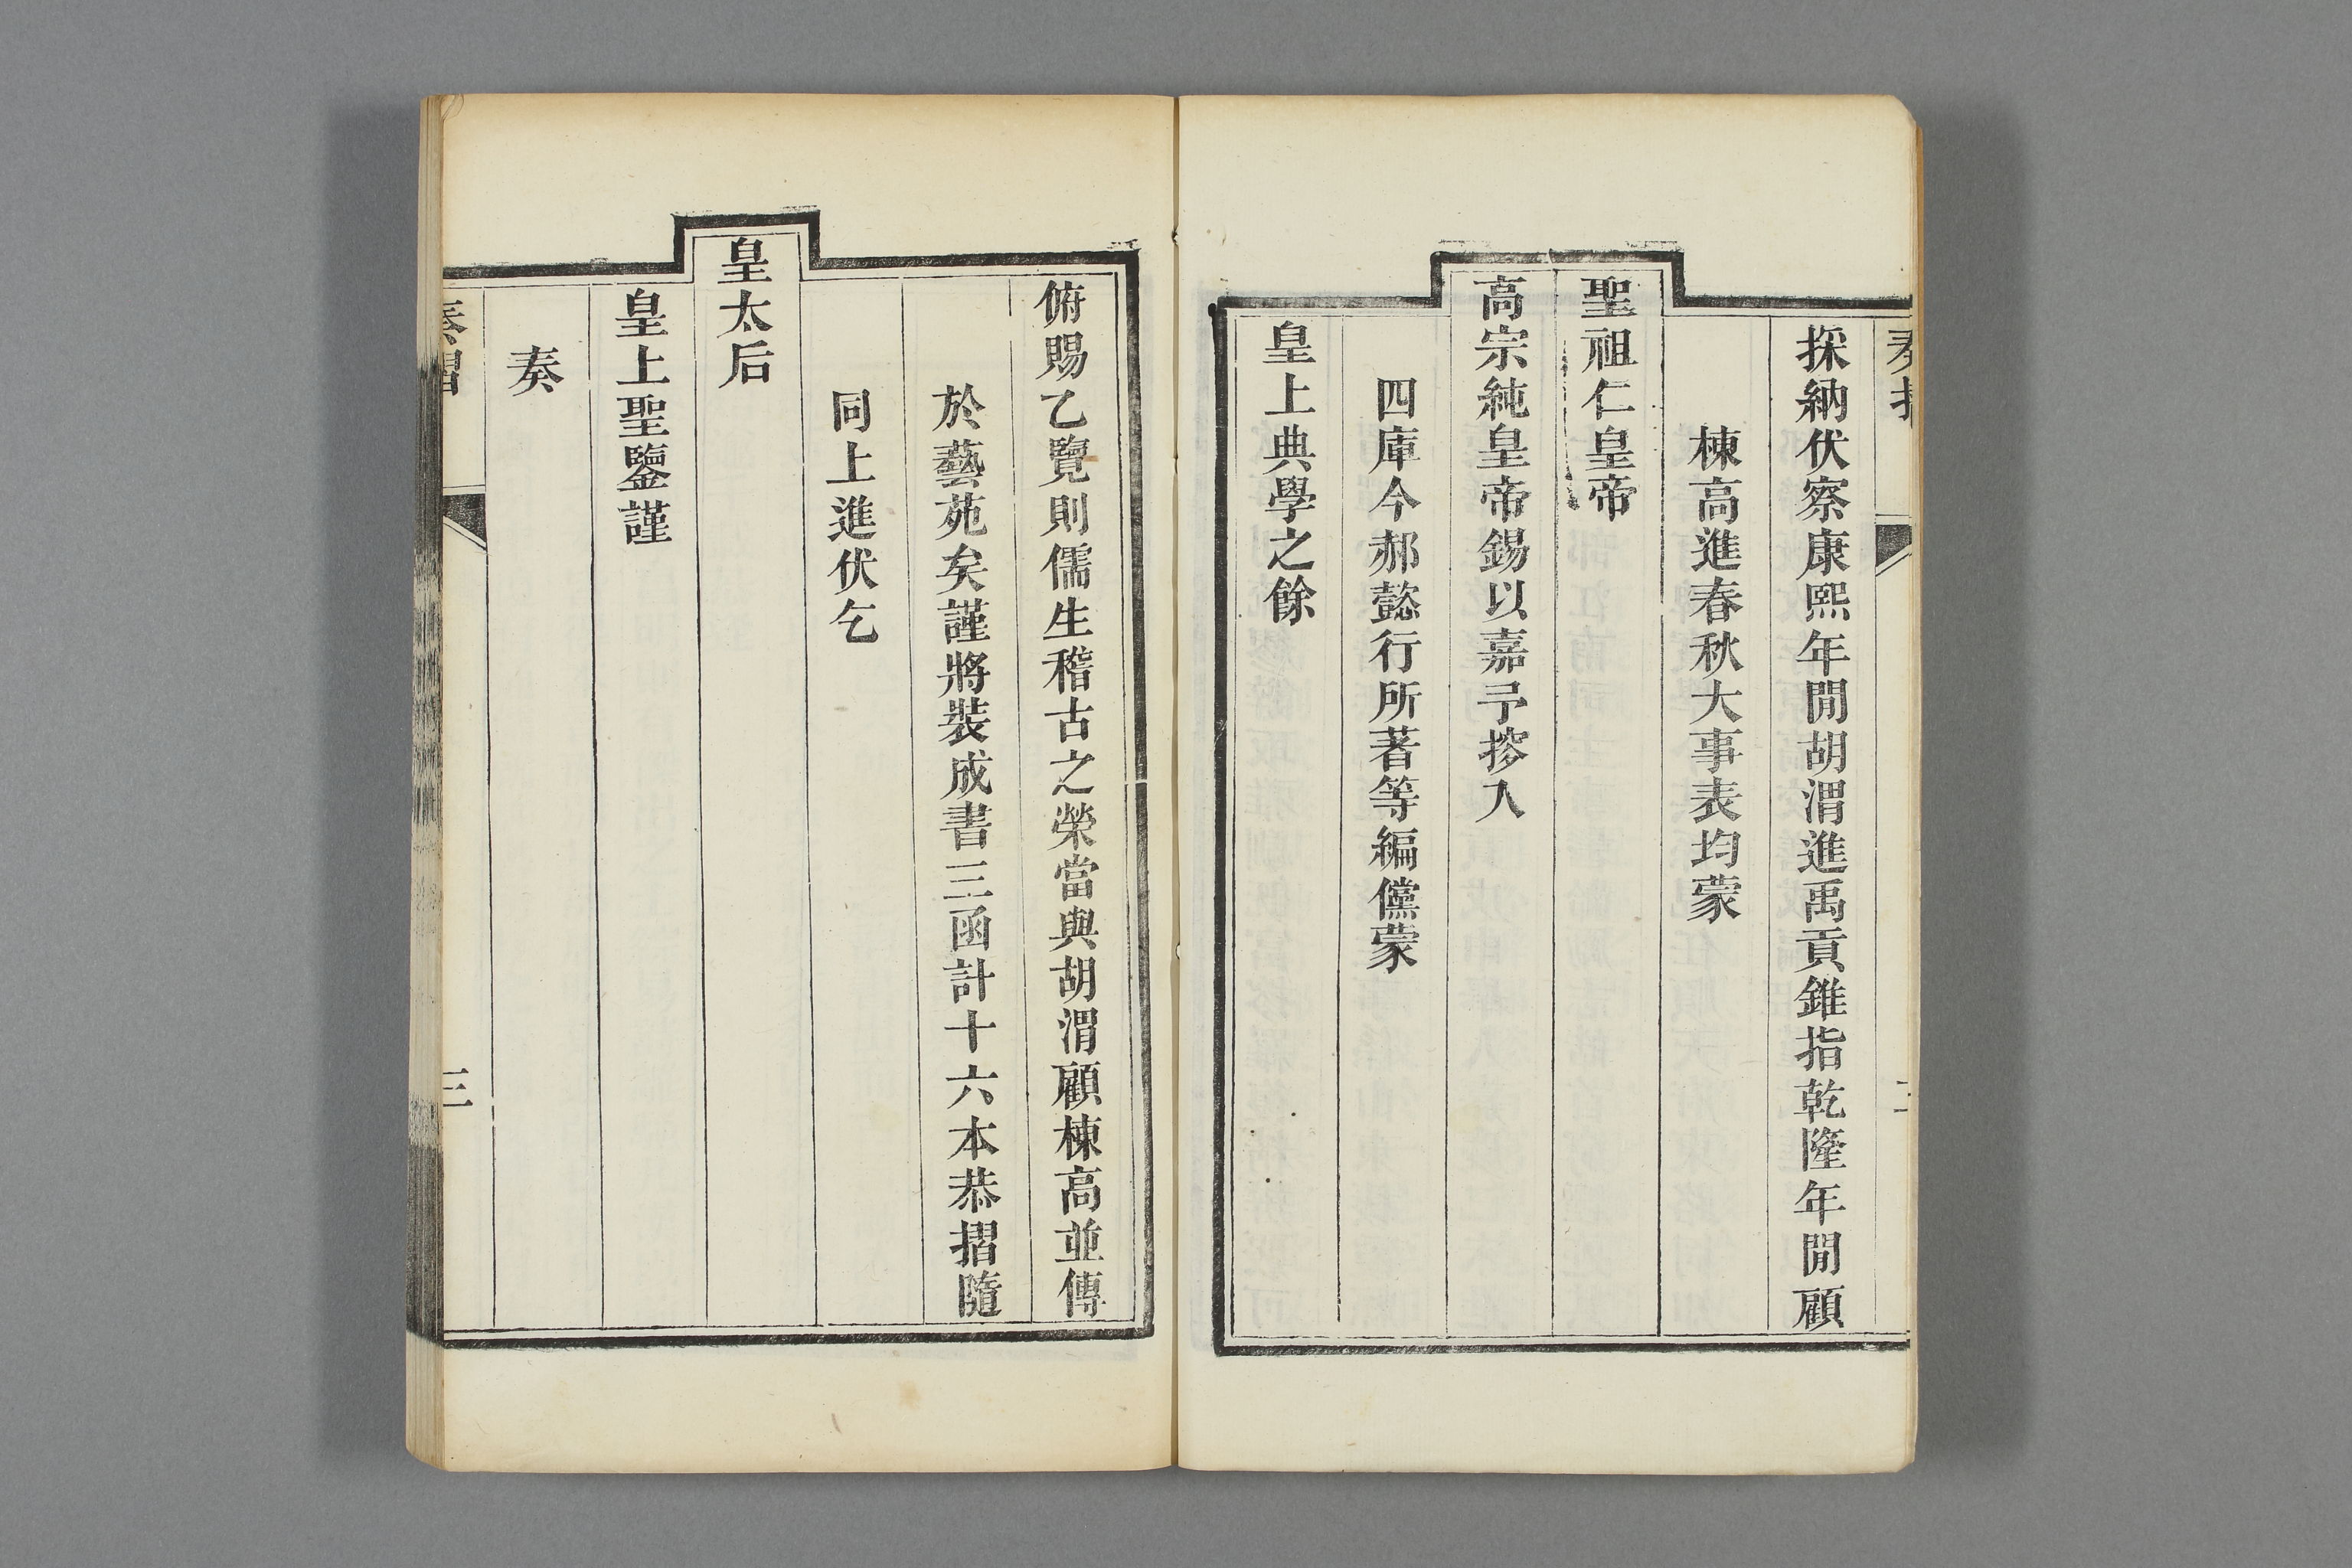 採納伏察康熙年閒胡渭進禹貢錐指乾隆年閒顧
棟高進春秋大事表均蒙
聖祖仁皇帝
高宗純皇帝錫以嘉予掺入
四庫今郝懿行所著等編儻蒙
皇上典學之餘
俯賜乙覽則儒生稽古之榮當與胡渭顧棟高並傳
於藝苑矣謹將裝成書三函計十六本恭摺隨
同上進伏乞
皇太后
皇上聖鑒謹
奏
奏摺
三